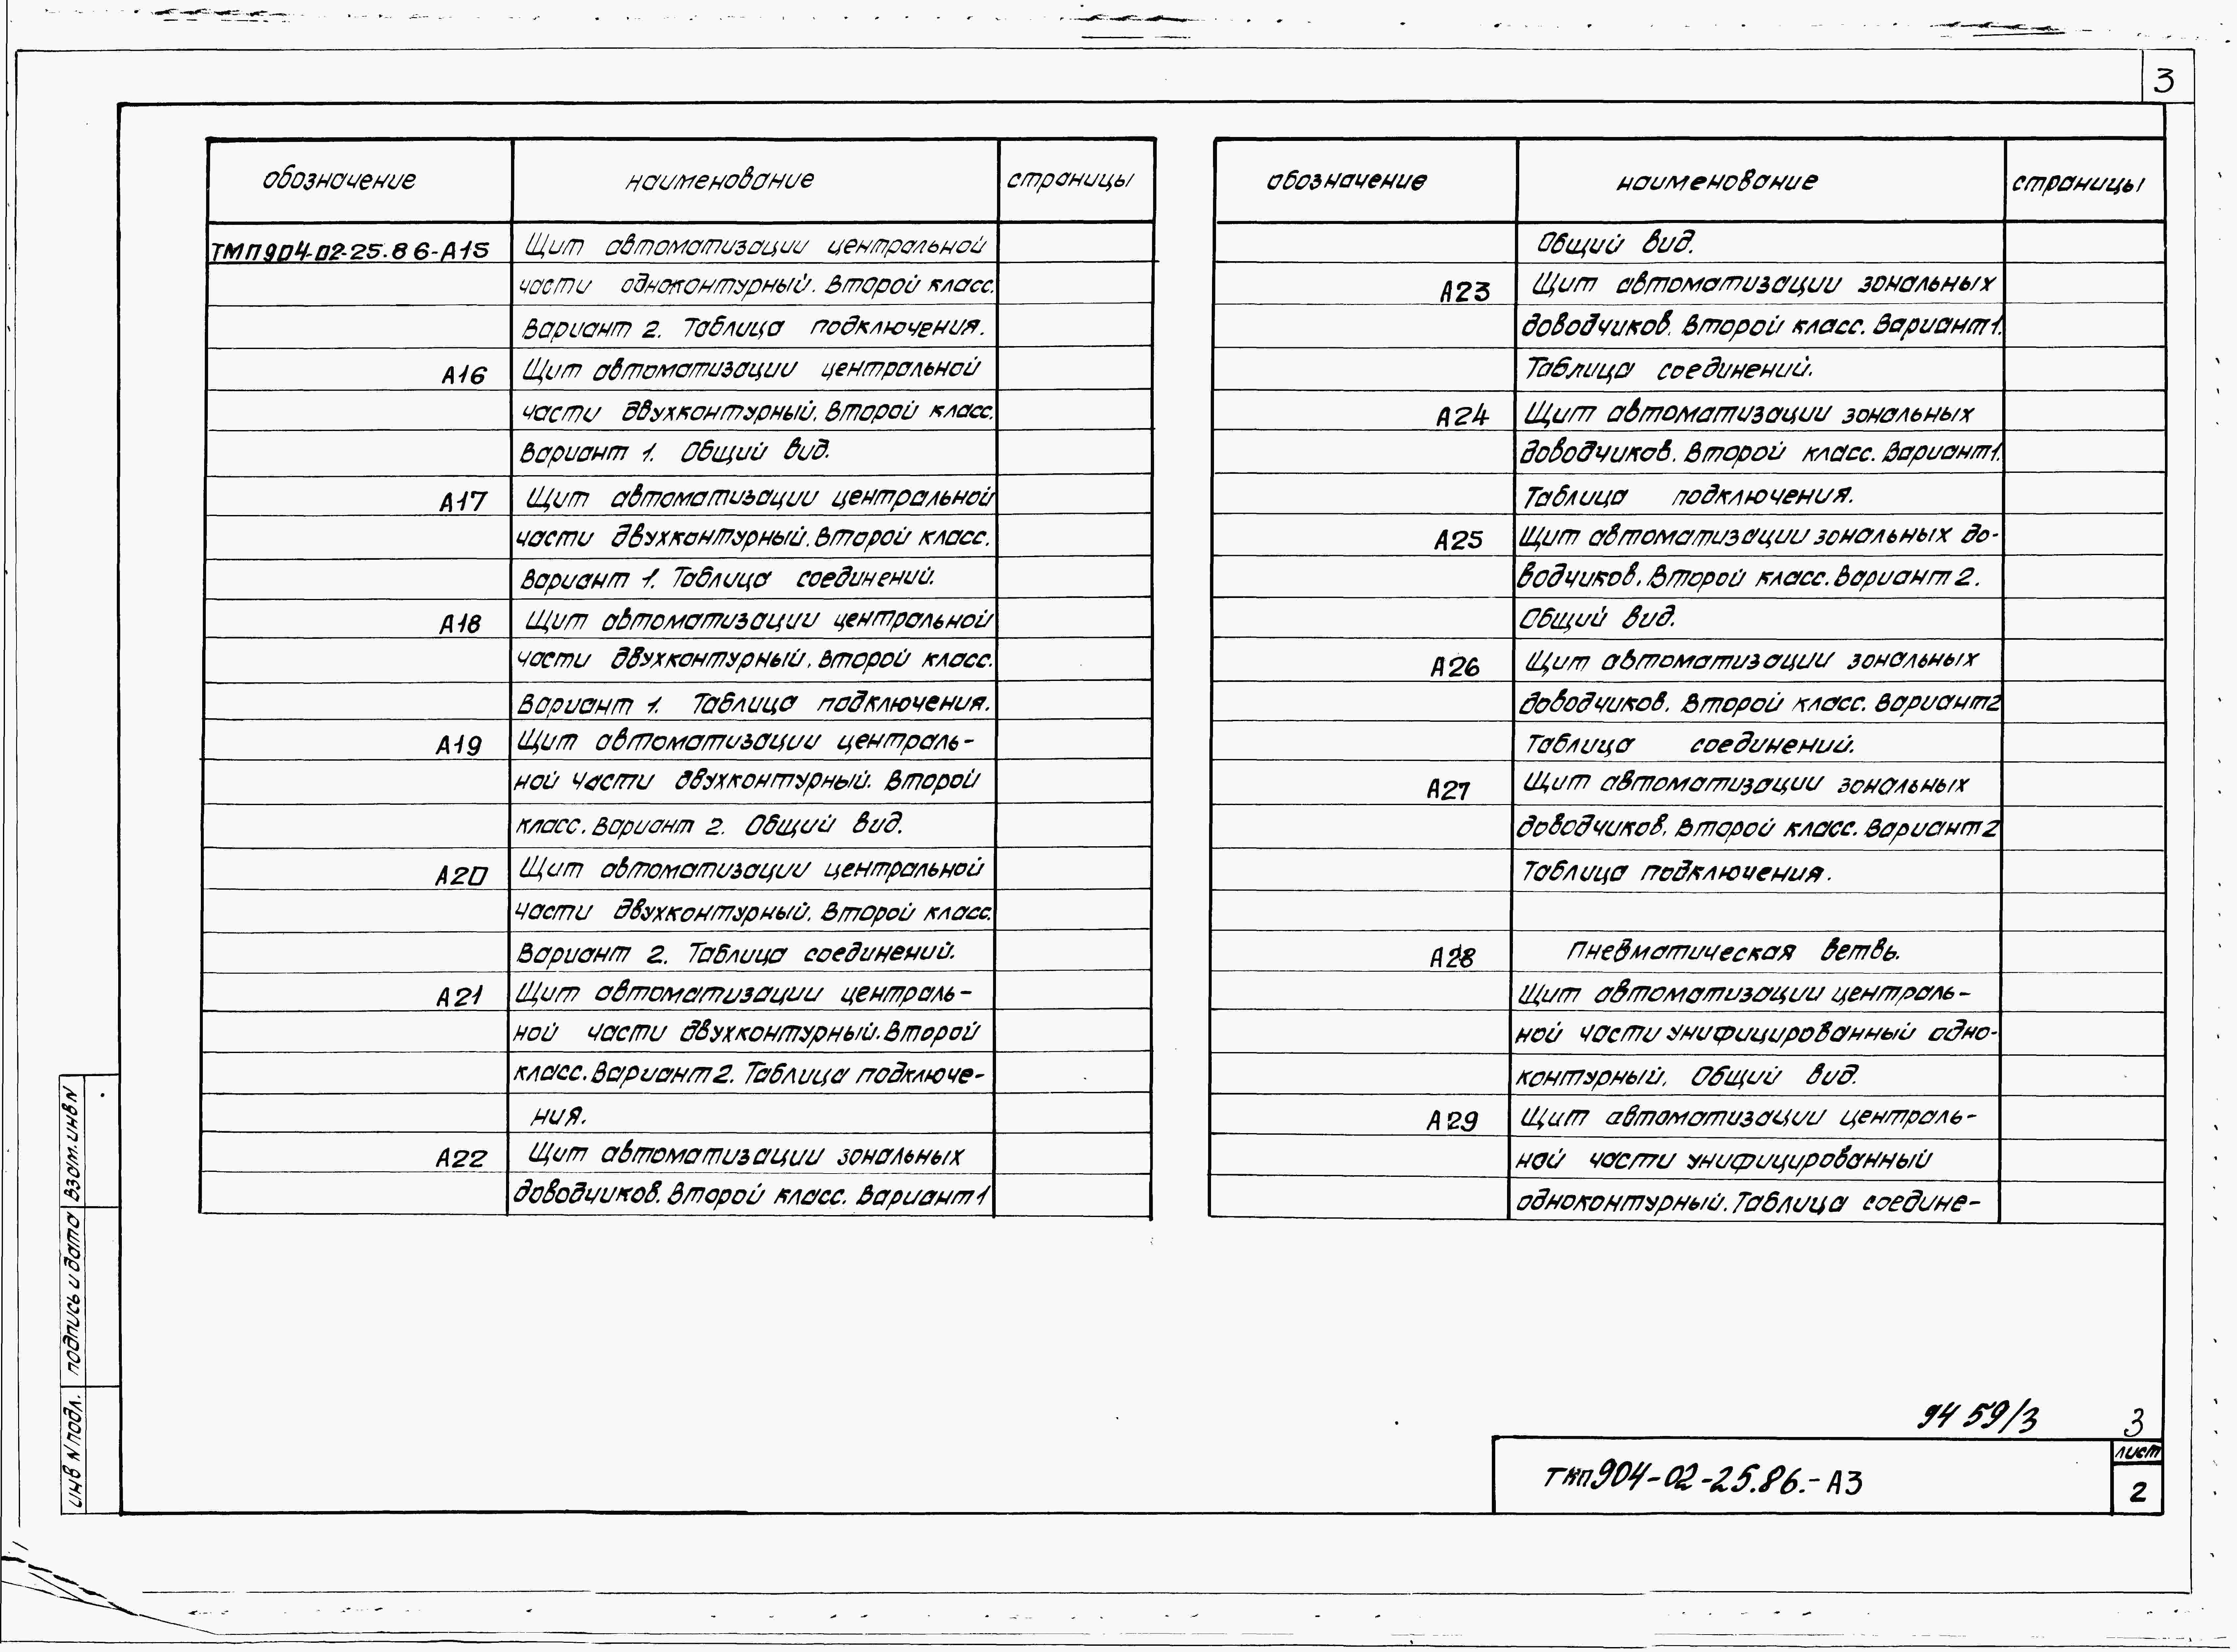 3
обозначение наименование страницы
ТМП904-02-25.86-А15 Щит автоматизации центральной
части одноконтурный. Второй класс.
Вариант 2. Таблица подключения.
А16 Щит автоматизации центральной
части двухконтурный. Второй класс.
Вариант 1. Общий вид.
А17 Щит автоматизации центральной
части двухконтурный. Второй класс.
Вариант 1. Таблица соединений.
А18 Щит автоматизации центральной
части двухконтурный. Второй класс.
Вариант 1. Таблица подключения.
А19 Щит автоматизации централь-
ной части двухконтурный. Второй
класс. Вариант 2. Общий вид.
А20 Щит автоматизации центральной
части двухконтурный. Второй класс.
Вариант 2. Таблица соединений.
А21 Щит автоматизации централь-
ной части двухконтурный. Второй
класс. Вариант 2. Таблица подключе-
ния.
А22 Щит автоматизации зональных
доводчиков. Второй класс. Вариант 1
обозначение наименование страницы
Общий вид.
А23 Щит автоматизации зональных
доводчиков. Второй класс. Вариант 1.
Таблица соединений.
А24 Щит автоматизации зональных
доводчиков. Второй класс. Вариант 1.
Таблица подключения.
А25 Щит автоматизации зональных до-
водчиков. Второй класс. Вариант 2.
Общий вид.
А26 Щит автоматизации зональных
доводчиков. Второй класс. Вариант 2
Таблица соединений.
А27 Щит автоматизации зональных
доводчиков. Второй класс. Вариант 2
Таблица подключения.
А28 Пневматическая ветвь.
Щит автоматизации централь-
ной части унифицированный одно-
контурный. Общий вид.
А29 Щит автоматизации централь-
ной части унифицированный
одноконтурный. Таблица соедине-
9459/3 3
ТМП904-02-25.86.-А3
лист
2
инв N подл. подпись и дата взам. инв N